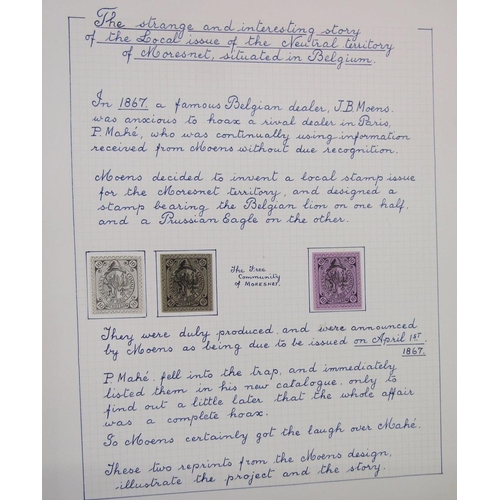 The strange and interesting story
of the Local issue of the Neutral territory
of Moresnet, situated in Belgium.
In 1867. a famous Belgian dealer, J.B. Moens.
was anxious to hoax a rival dealer in Paris,
P. Mahé, who was continually using information
received from Moens without due recognition.
Moens decided to invent a local stamp issue
for the Moresnet territory, and designed a
stamp bearing the Belgian lion on one half,
and a Prussian Eagle on the other.
The Free
Community
of MORESNET.
They were duly produced and were announced
by Moens as being due to be issued on April 1ST
1867.
P. Mahé, fell into the trap, and immediately
listed them in his new catalogue, only to
find out a little later that the whole affair
was a complete hoax.
So Moens certainly got the laugh over Mahé.
These two reprints from the Moens design,
illustrate the project and the story.